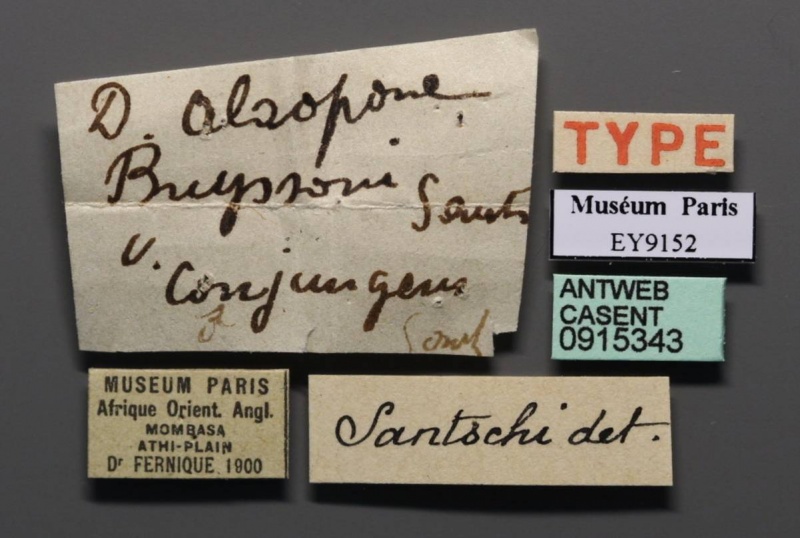 D. Alaopone
Buyssoni
Sants
v. Conjungens
Sant
TYPE
Muséum Paris
EY9152
ANTWEB
CASENT
0915343
MUSEUM PARIS
Afrique Orient. Angl.
MOMBASA
ATHI-PLAIN
Dr FERNIQUE 1900
Santschi det.